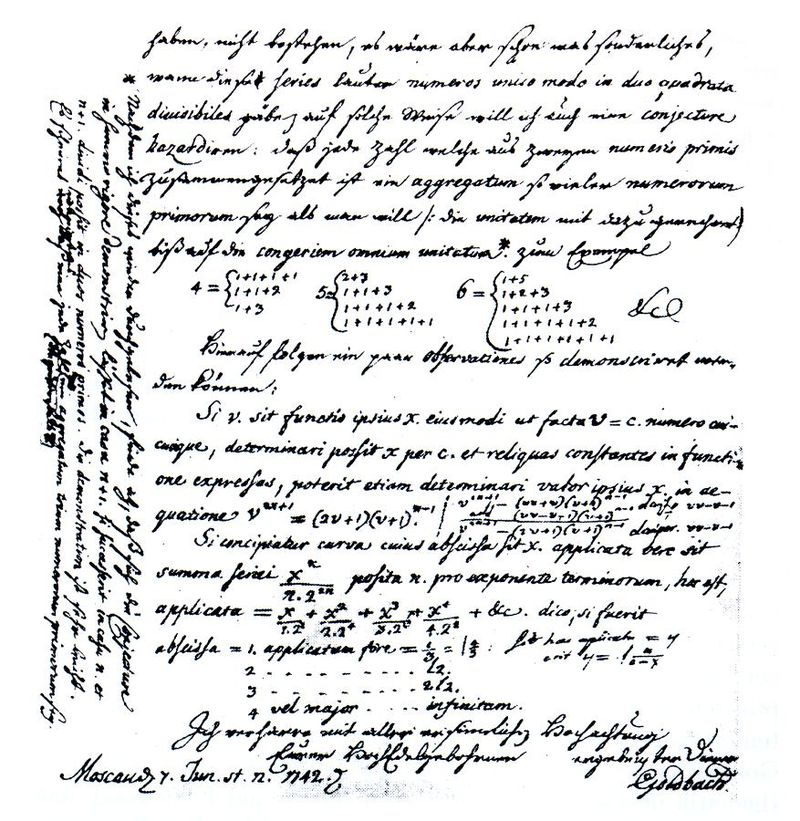 haben, nicht bestehen, es wäre aber schon was sonderliches,
wann diese series lauter numeros unico modo in duo quadrata
divisibiles gäbe, auf solche Weise will ich auch eine conjecture
hazardiren: daß jede Zahl welche aus zweyen numeris primis
zusammengesetzet ist ein aggregatum so vieler numerorum
primorum sey als man will /: die unitatem mit dazu gerechnet
biß auf die congeriem omnium unitatum*. zum Exempel
4 = { 1+1+1+1 1+1+2 1+3
5 = { 2+3 1+1+3 1+1+1+2 1+1+1+1+1
6 = { 1+5 1+2+3 1+1+1+3 1+1+1+1+2 1+1+1+1+1+1 &c
Hierauf folgen ein paar observationes so demonstriret wer-
den können:
Si v. sit functio ipsius x. eiusmodi ut facta v = c. numero cui-
cunque, determinari possit x per c. et reliquas constantes in functi-
one expressas, poterit etiam determinari valor ipsius x. in ae-
quatione v = (2v+1)(v+1)
Si concipiatur curva cuius abscissa sit x. applicata vero sit
summa seriei x^n/n.2^2n posita n. pro exponente terminorum, hoc est,
applicata = x/1.2² + x²/2.2⁴ + x³/3.2⁶ + x⁴/4.2⁸ + &c. dico, si fuerit
abscissa = 1. applicatam fore = l 4/3
2 . . . . . . . . l2.
3 . . . . . . . . 2l2.
4 vel major . . . . infinitam.
Ich verharre mit aller ersinnlichen Hochachtung
Eurer Hochedelgebohrnen ergebenster Diener
Moscau d. 7. Jun. st. n. 1742. Goldbach
* Nachdem ich dieses wieder durchgelesen, finde ich, daß sich die Conjecture
in summo rigore demonstriren lässet in casu n+1. si successerit in casu n. et
n+1. dividi possit in duos numeros primos. Die demonstration ist sehr leicht.
Es scheinet wenigstens, daß eine jede Zahl die größer ist als 2 ein aggregatum trium numerorum primorum sey.